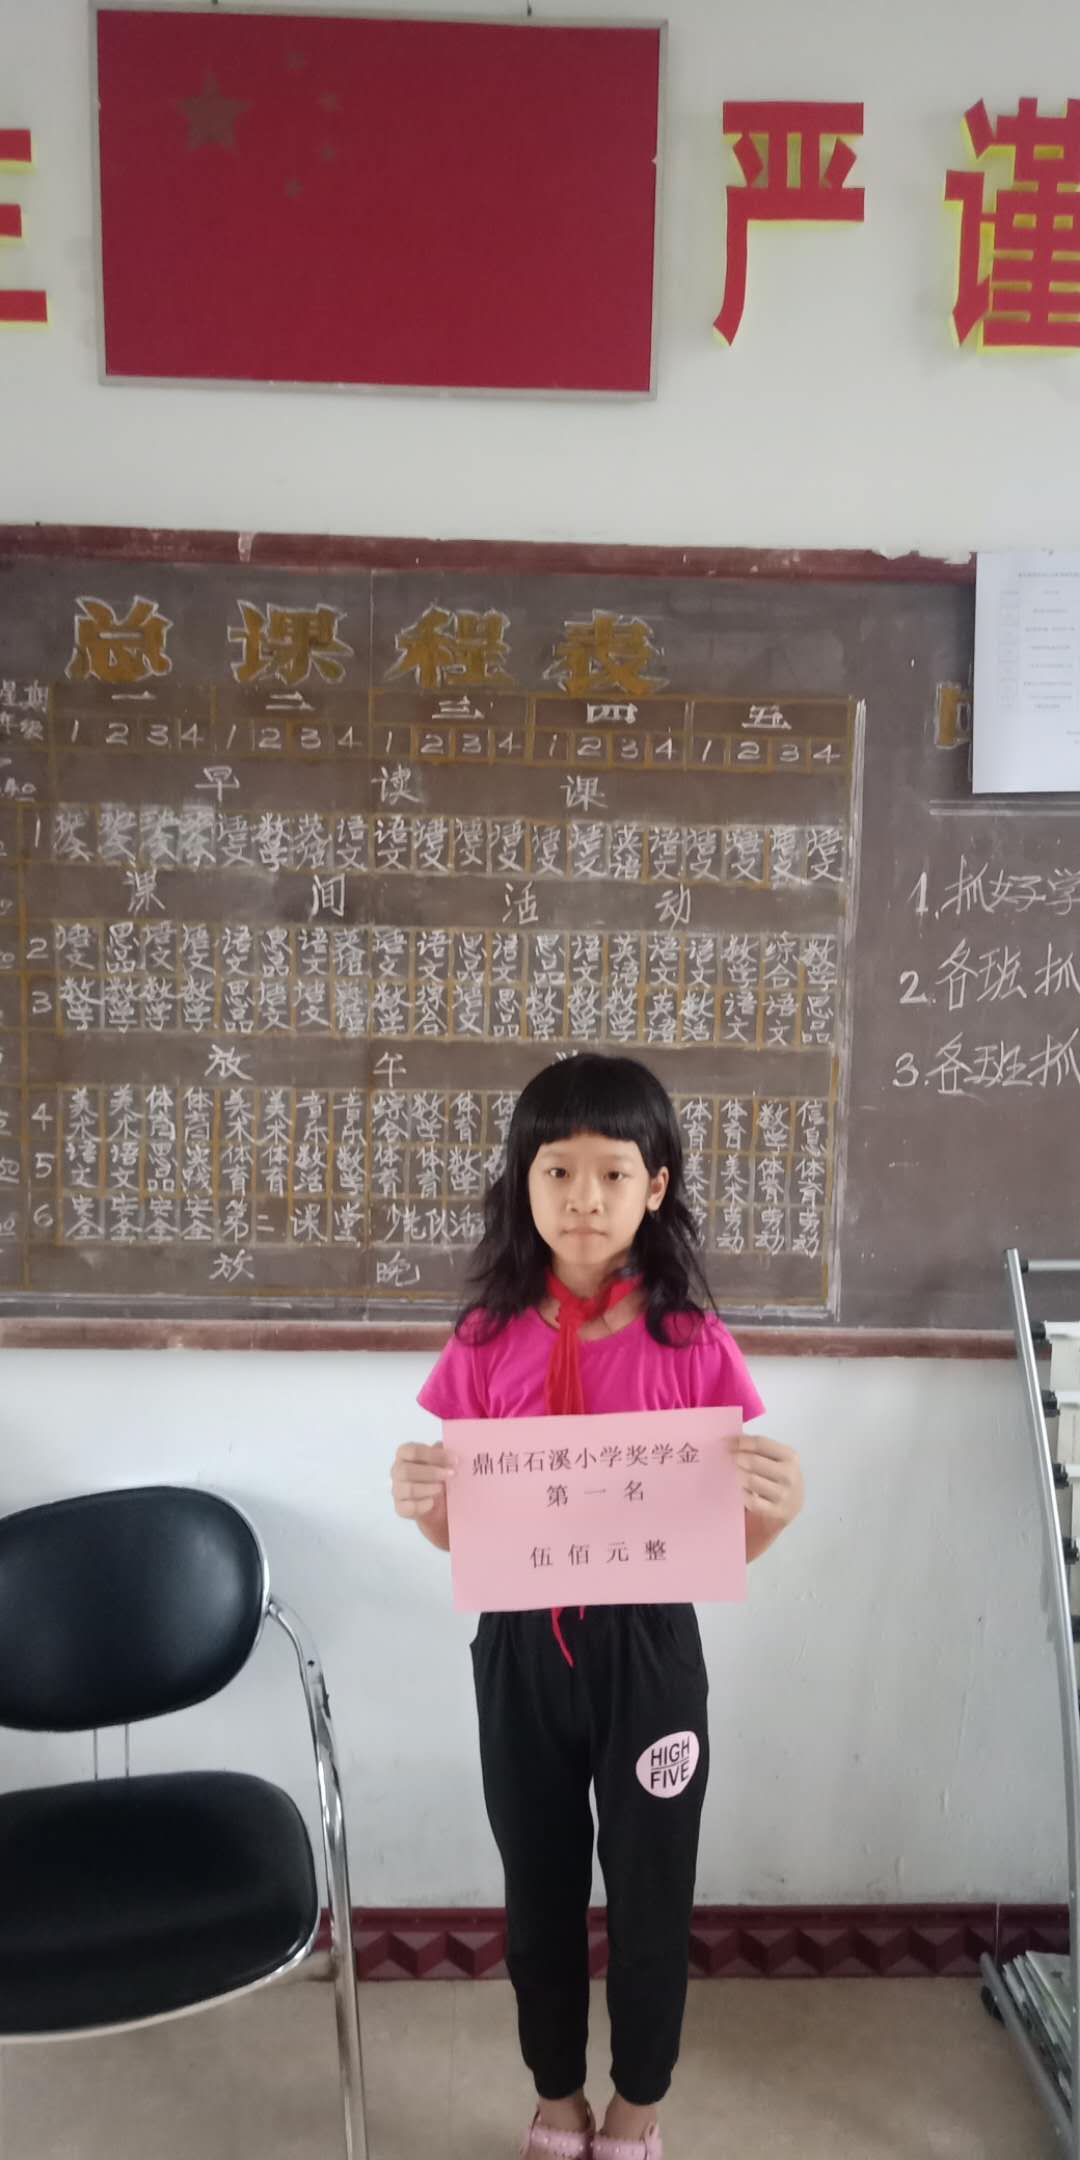 严谨
总课程表
星期 一 二 三 四 五
年级 1 2 3 4 1 2 3 4 1 2 3 4 1 2 3 4 1 2 3 4
早读课
1 语文 数学 英语 语文 语文 语文 语文 语文 语文 语文 英语 语文 语文 语文 语文 语文
课间活动
2 语文 思品 语文 语文 语文 思品 语文 英语 语文 语文 思品 语文 思品 语文 英语 语文 语文 数学 综合 数学
3 数学 数学 数学 数学 思品 语文 语文 数学 综合 语文 思品 数学 数学 数学 英语 数活 语文 语文 思品
放午学
4 美术 美术 体育 体育 美术 美术 音乐 音乐 综合 数学 体育 体育 体育 数学 信息
5 语文 语文 思品 实践 体育 体育 数活 数学 体育 体育 数学 美术 美术 体育 体育
6 安全 安全 安全 安全 第二课堂 少先队活 劳动 劳动 劳动
放晚
1.抓好学
2.各班抓
3.各班抓
鼎信石溪小学奖学金
第一名
伍佰元整
HIGH
FIVE